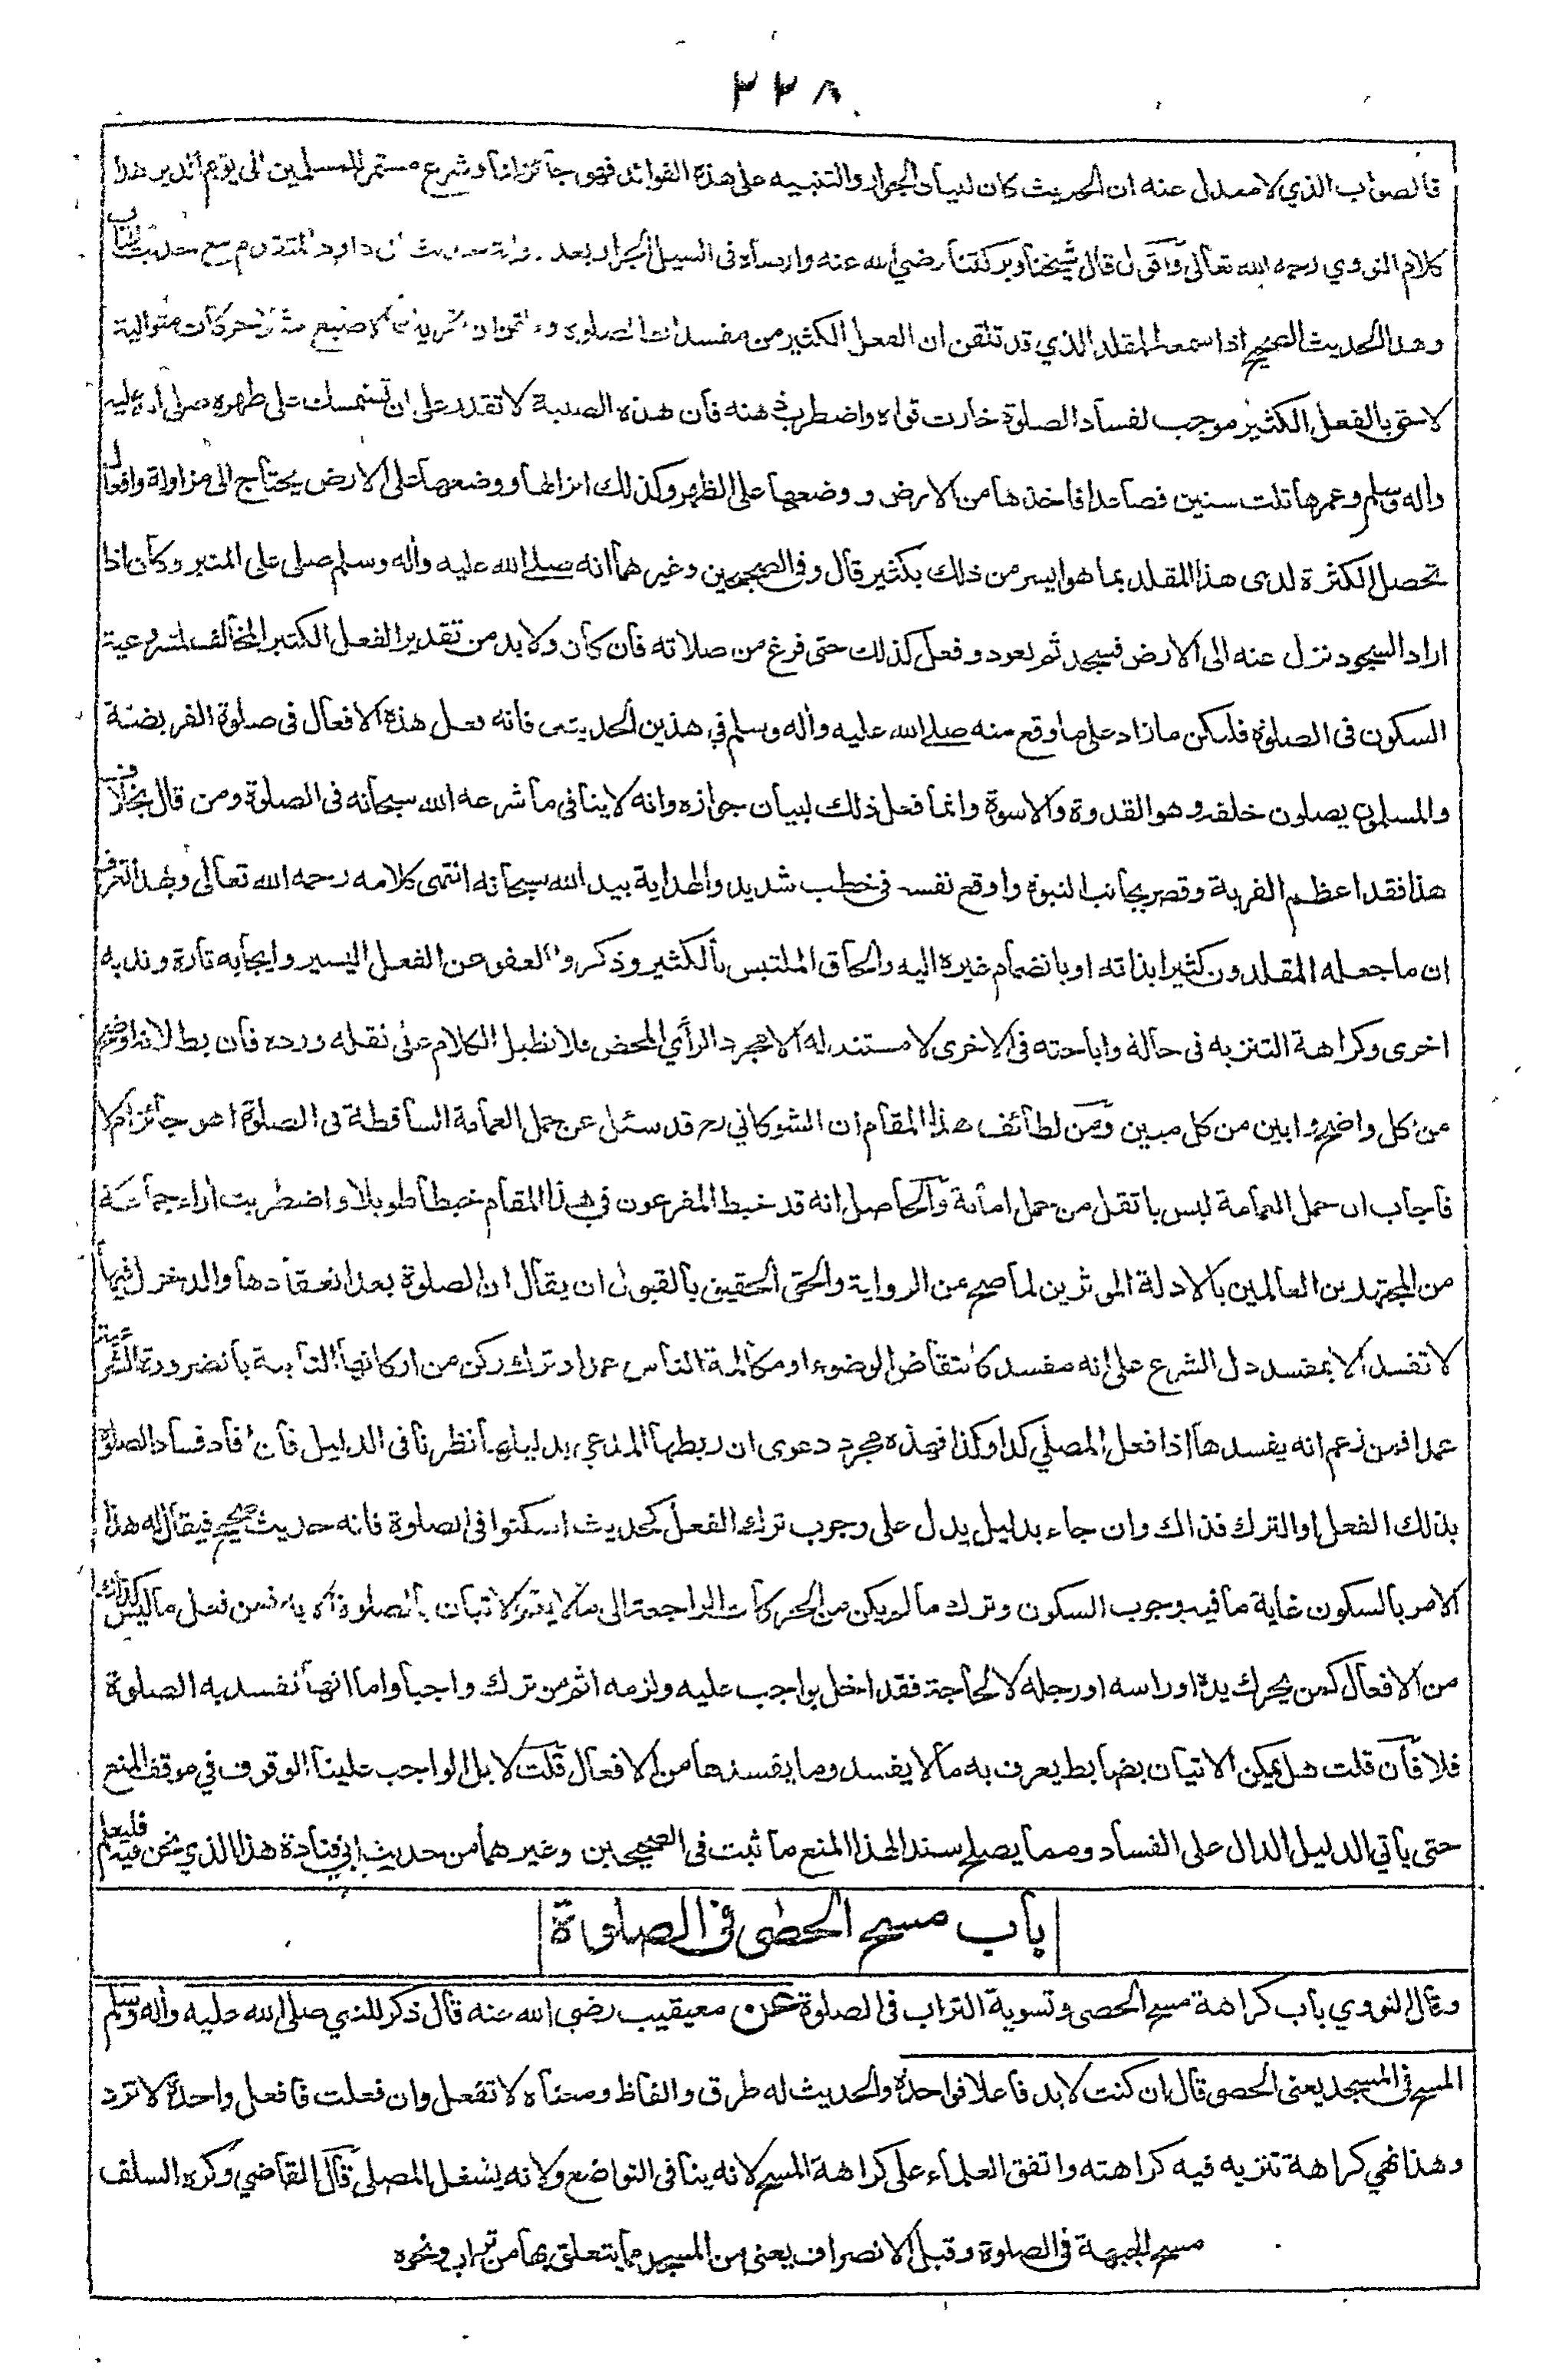 ٢٢٨
فالصواب الذي لا معدل عنه ان الحديث كان لبيان الجواز والتنبيه على هذه الفوائد فهو جائز لنا وشرع مستمر للمسلمين الى يوم الدين هذا
كلام النووي رحمه الله تعالى واقول قال شيخنا وبركتنا رضي الله عنه وارضاه فى السيل الجرار بعد حديث داود المتقدم مع حديث الباب
وهذا الحديث الصحيح اذا سمعه المقلد الذي قد تلقن ان الفعل الكثير من مفسدات الصلوة وان تحريك الاصبع ثلاث حركات متوالية
لاحق بالفعل الكثير موجب لفساد الصلوة خارت قواه واضطرب ذهنه فان هذه الصبية لا تقدر على ان تستمسك على ظهره صلى الله عليه
واله وسلم وعمرها ثلث سنين فصاعدا فاخذها من الارض ووضعها على الظهر وكذلك انزالها ووضعها على الارض يحتاج الى مزاولة وافعال
تحصل الكثرة لدى هذا المقلد بما هو ايسر من ذلك بكثير قال وفى الصحيحين وغيرهما انه صلى الله عليه واله وسلم صلى على المنبر وكان اذا
اراد السجود نزل عنه الى الارض فيسجد ثم يعود وفعل كذلك حتى فرغ من صلاته فان كان ولا بد من تقدير الفعل الكثير المخالف لمشروعية
السكون فى الصلوة فليكن ما زاد على ما وقع منه صلى الله عليه واله وسلم في هذين الحديثين فانه فعل هذه الافعال فى صلوة الفريضة
والمسلمون يصلون خلفه وهو القدوة والاسوة وانما فعل ذلك لبيان جوازه وانه لا ينافى ما شرعه الله سبحانه فى الصلوة ومن قال بخلاف
هذا فقد اعظم الفرية وقصر بجانب النبوة واوقع نفسه في خطب شديد والهداية بيد الله سبحانه انتهى كلامه رحمه الله تعالى وبهذا تعرف
ان ما جعله المقلدون كثيرا بذاته او بانضمام غيره اليه والحاق الملتبس بالكثير وذكروا العفو عن الفعل اليسير وايجابه تارة وندبه
اخرى وكراهة التنزيه فى حالة واباحته فى الاخرى لا مستند له الا مجرد الرأي المحض فلا نطيل الكلام على نقله ورده فان بطلانه اوضح
من كل واضح وابين من كل مبين ومن لطائف هذا المقام ان الشوكاني رح قد سئل عن حمل العمامة الساقطة فى الصلوة اهو جائز ام لا
فاجاب ان حمل العمامة ليس باثقل من حمل امامة والحاصل انه قد خبط المفرعون في هذا المقام خبطا طويلا واضطربت اراء جماعة
من المجتهدين العالمين بالادلة الموثرين لما صح من الرواية والحق الحقيق بالقبول ان يقال ان الصلوة بعد انعقادها والدخول فيها
لا تفسد الا بمفسد دل الشرع على انه مفسد كانتقاض الوضوء او مكالمة الناس عمدا وترك ركن من اركانها الثابتة بالضرورة الشرعية
عمدا فمن زعم انه يفسدها اذا فعل المصلي كذا وكذا فهذه مجرد دعوى ان ربطها المدعي بدليلها نظرنا فى الدليل فان افاد فساد الصلوة
بذلك الفعل او الترك فذاك وان جاء بدليل يدل على وجوب ترك الفعل كحديث اسكنوا فى الصلوة فانه حديث صحيح فيقال له هذا
الامر بالسكون غاية ما فيه وجوب السكون وترك ما لم يكن من الحركات الراجعة الى ما لا يتم الاتيان بالصلوة الا به فمن فعل ما ليس كذلك
من الافعال كمن يحرك يده او راسه او رجله لا لحاجة فقد اخل بواجب عليه ولزمه اثم من ترك واجبا واما انها تفسد به الصلوة
فلا فان قلت هل يمكن الاتيان بضابط يعرف به ما لا يفسد وما يفسدها من الافعال قلت لا بل الواجب علينا الوقوف في موقف المنع
حتى ياتي الدليل الدال على الفساد ومما يصلح سندا لهذا المنع ما ثبت فى الصحيحين وغيرهما من حديث ابي قتادة هذا الذي نحن فيه فليعلم
باب مسح الحصى فى الصلوة
وقال النووي باب كراهة مسح الحصى وتسوية التراب فى الصلوة عن معيقيب رضي الله عنه قال ذكر للنبي صلى الله عليه واله وسلم
المسح فى المسجد يعنى الحصى قال ان كنت لا بد فاعلا فواحدة والحديث له طرق والفاظ ومعناه لا تفعل وان فعلت فافعل واحدة لا تزد
وهذا نهي كراهة تنزيه فيه كراهته واتفق العلماء على كراهة المسح لانه ينافى التواضع ولانه يشغل المصلى قال القاضي وكره السلف
مسح الجبهة فى الصلوة وقبل الانصراف يعنى من المسجد مما يتعلق بها من تراب ونحوه